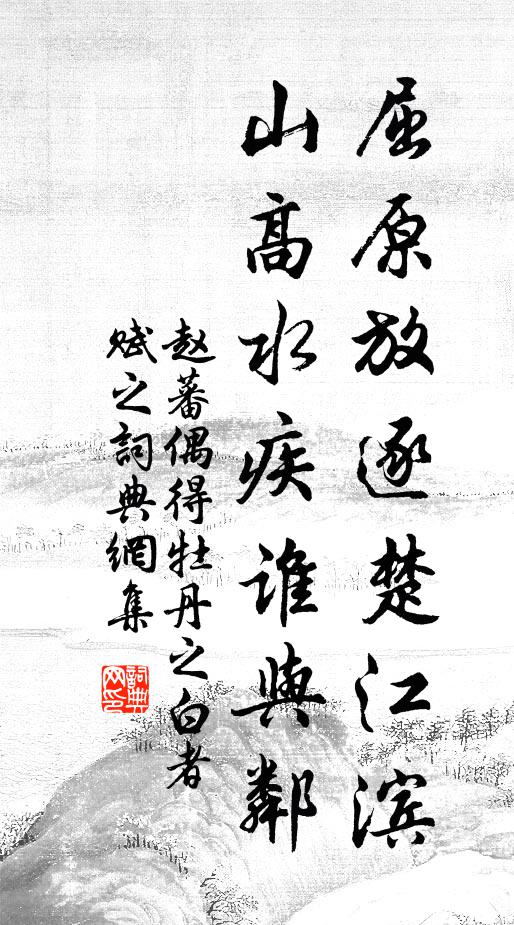 屈原放逐楚江滨
山高水疾谁與鄰
赵蕃偶得牡丹之白者
赋之詞典網集
詞典网印